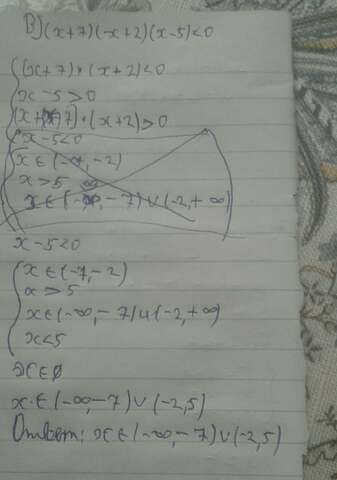 В) (x+7)(x+2)(x-5)<0
(x+7)·(x+2)<0
x-5>0
(x+7)·(x+2)>0
x-5<0
x∈(-7,-2)
x>5
x∈(-∞,-7)∪(-2,+∞)
x-5<0
x∈(-7,-2)
x>5
x∈(-∞,-7)∪(-2,+∞)
x<5
x∈∅
x∈(-∞,-7)∪(-2,5)
Ответ: x∈(-∞,-7)∪(-2,5)